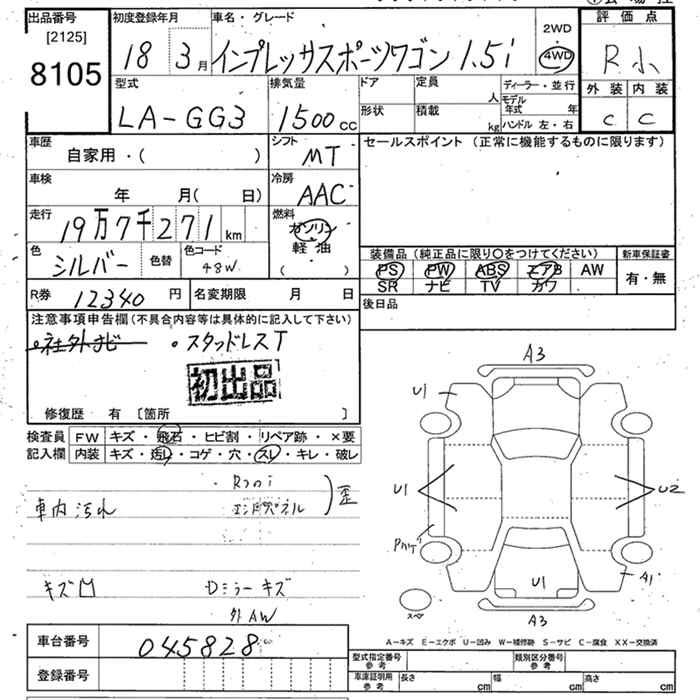 出品番号
[2125]
8105
初度登録年月
18 3月
車名・グレード
インプレッサスポーツワゴン 1.5i
2WD
4WD
評価点
R 小
外装 内装
C C
型式
LA-GG3
排気量
1500cc
ドア
形状
定員
人
積載
kg
ディーラー・並行
モデル年式 年
ハンドル 左・右
車歴
自家用・( )
シフト
MT
セールスポイント (正常に機能するものに限ります)
車検
年 月( 日)
冷房
AAC
走行
19万7千271km
燃料
ガソリン
軽・油
( )
色
シルバー
色替
色コード
48W
装備品 (純正品に限り○をつけてください)
PS PW ABS エアB AW
SR ナビ TV カワ
新車保証書
有・無
R券 12340円
名変期限 月 日
後日品
注意事項申告欄(不具合内容等は具体的に記入して下さい)
・社外ナビ ・スタッドレスT
初出品
修復歴 有 [箇所 ]
検査員記入欄
FW キズ・飛石・ヒビ割・リペア跡・×要
内装 キズ・汚レ・コゲ・穴・スレ・キレ・破レ
車内汚れ
エンドパネル
歪
キズ凹
Dミラーキズ
外AW
A3
U1
U1
U2
U1
A1
A3
スペア
A-キズ E-エクボ U-凹み W-補修跡 S-サビ C-腐食 XX-交換済
車台番号
045828
登録番号
型式指定番号
参考
類別区分番号
参考
車庫証明用
参考
長さ cm
幅 cm
高さ cm